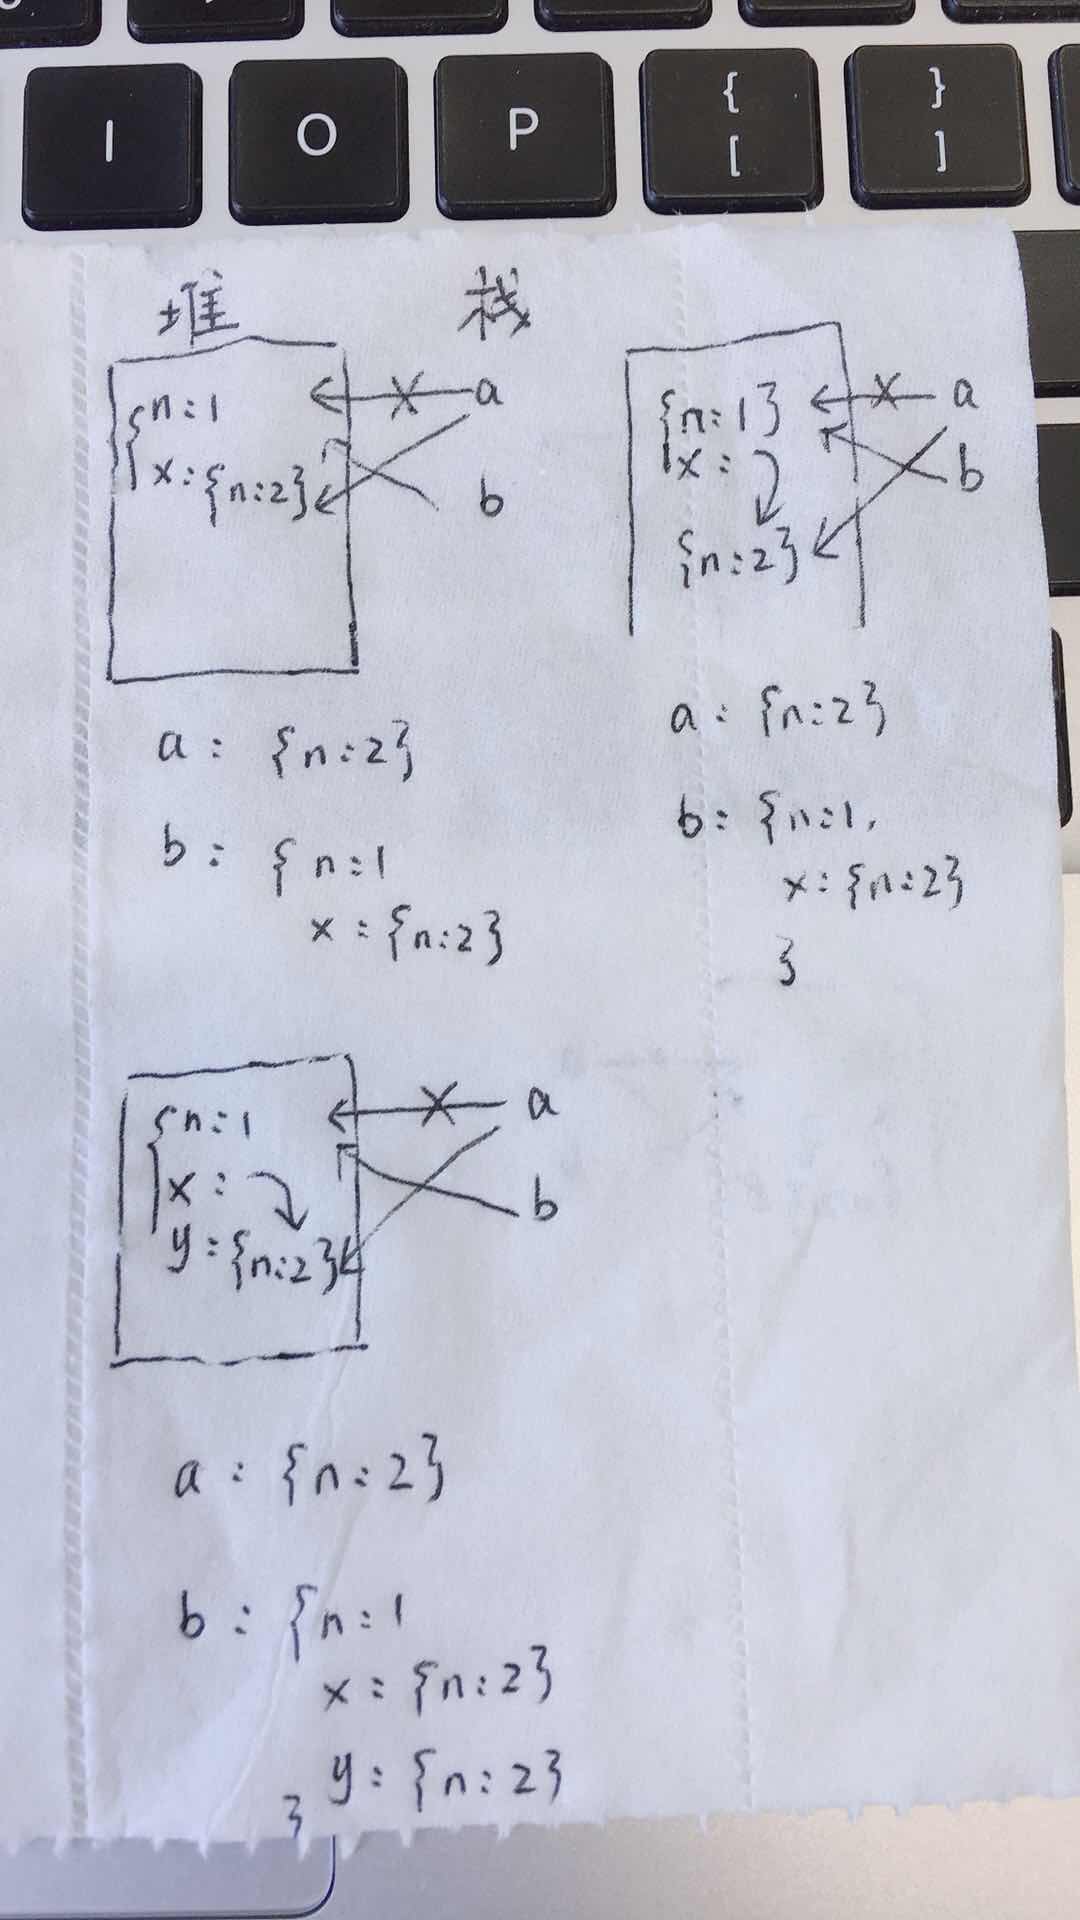 I O P { [ } ]
堆 栈
n:1
x:{n:2}
a
b
a: {n:2}
b: {n:1
x:{n:2}
{n:1}
x:
{n:2}
a
b
a: {n:2}
b: {n:1,
x:{n:2}
}
{n:1
x:
y:{n:2}
a
b
a: {n:2}
b: {n:1
x:{n:2}
y:{n:2}
}